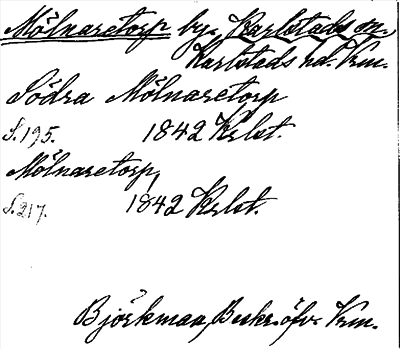 Mölnaretorp by, Karlstads sn,
Karlstads hd. Vrm.
Södra Mölnaretorp
S. 195. 1842 Krlst.
Mölnaretorp,
S. 217. 1842 Krlst.
Björkman, Beskr. öfv. Vrm.